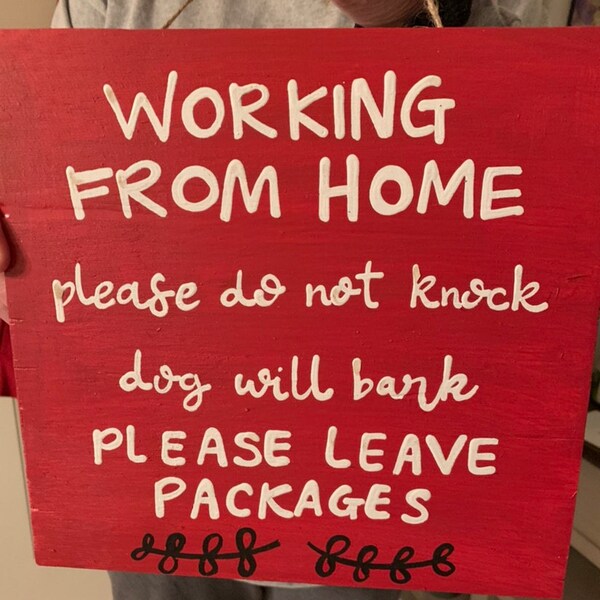 WORKING
FROM HOME
please do not knock
dog will bark
PLEASE LEAVE
PACKAGES